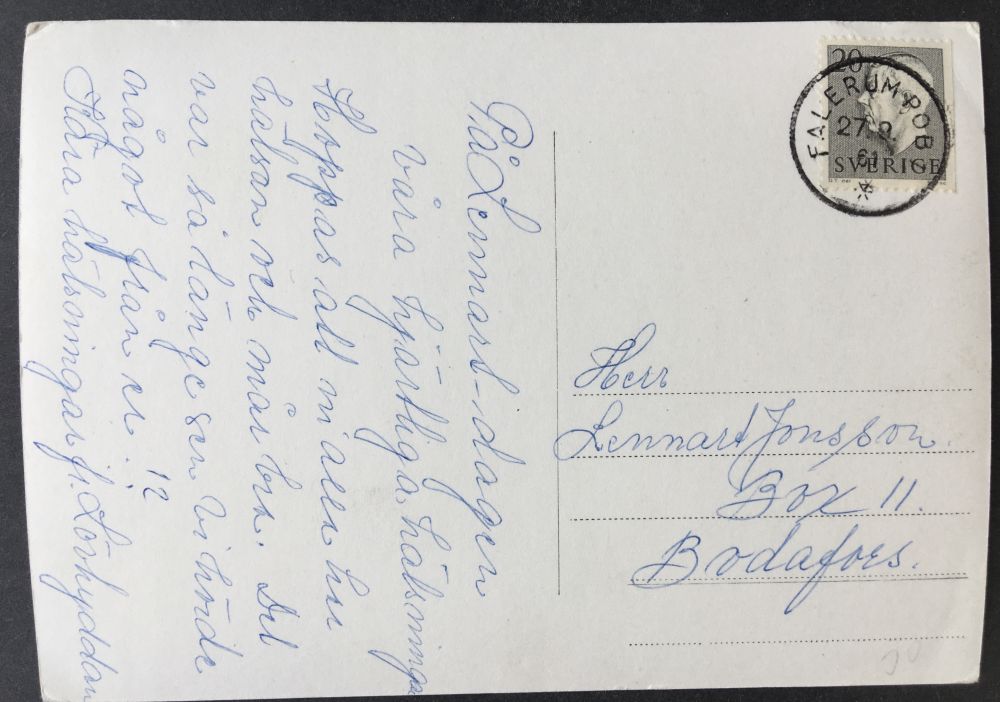 På Lennart-dagen
våra hjärtliga hälsninga
Hoppas att ni alla har
hälsan och mår bra. Det
var så länge sen vi hörde
något från er. !?
Kära hälsningar fr. Lövhyddan
20
SVERIGE
FALERUM POB
27
61
Herr
Lennart Jonsson.
Box 11.
Bodafors.